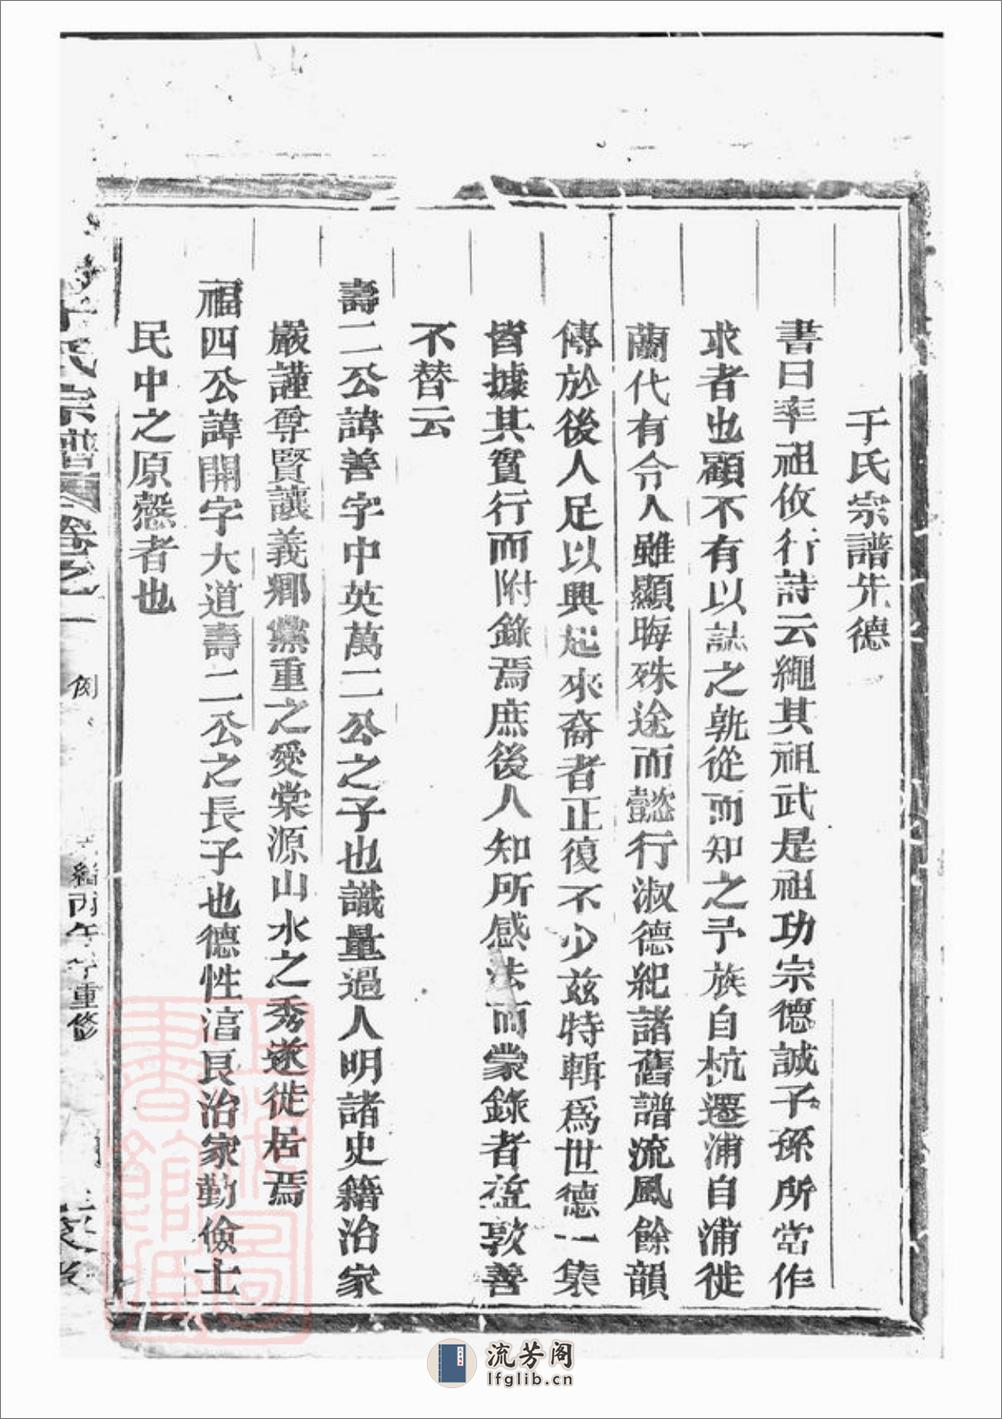 于氏宗譜先德
書曰率祖攸行詩云繩其祖武是祖功宗德誠子孫所當作
求者也顧不有以誌之孰從而知之予族自杭遷浦自浦徙
蘭代有令人雖顯晦殊途而懿行淑德紀諸舊譜流風餘韻
傳於後人足以興起來裔者正復不少兹特輯爲世德一集
皆據其實行而附錄焉庶後人知所感法而蒙錄者益敦善
不替云
壽二公諱善字中英萬二公之子也識量過人明諸史籍治家
嚴謹尊賢讓義鄉黨重之愛棠源山水之秀遂徙居焉
福四公諱開字大道壽二公之長子也德性湻良治家勤儉士
民中之原慤者也
氏宗譜 卷之一
緒丙午年重修
流芳阁
lfglib.cn